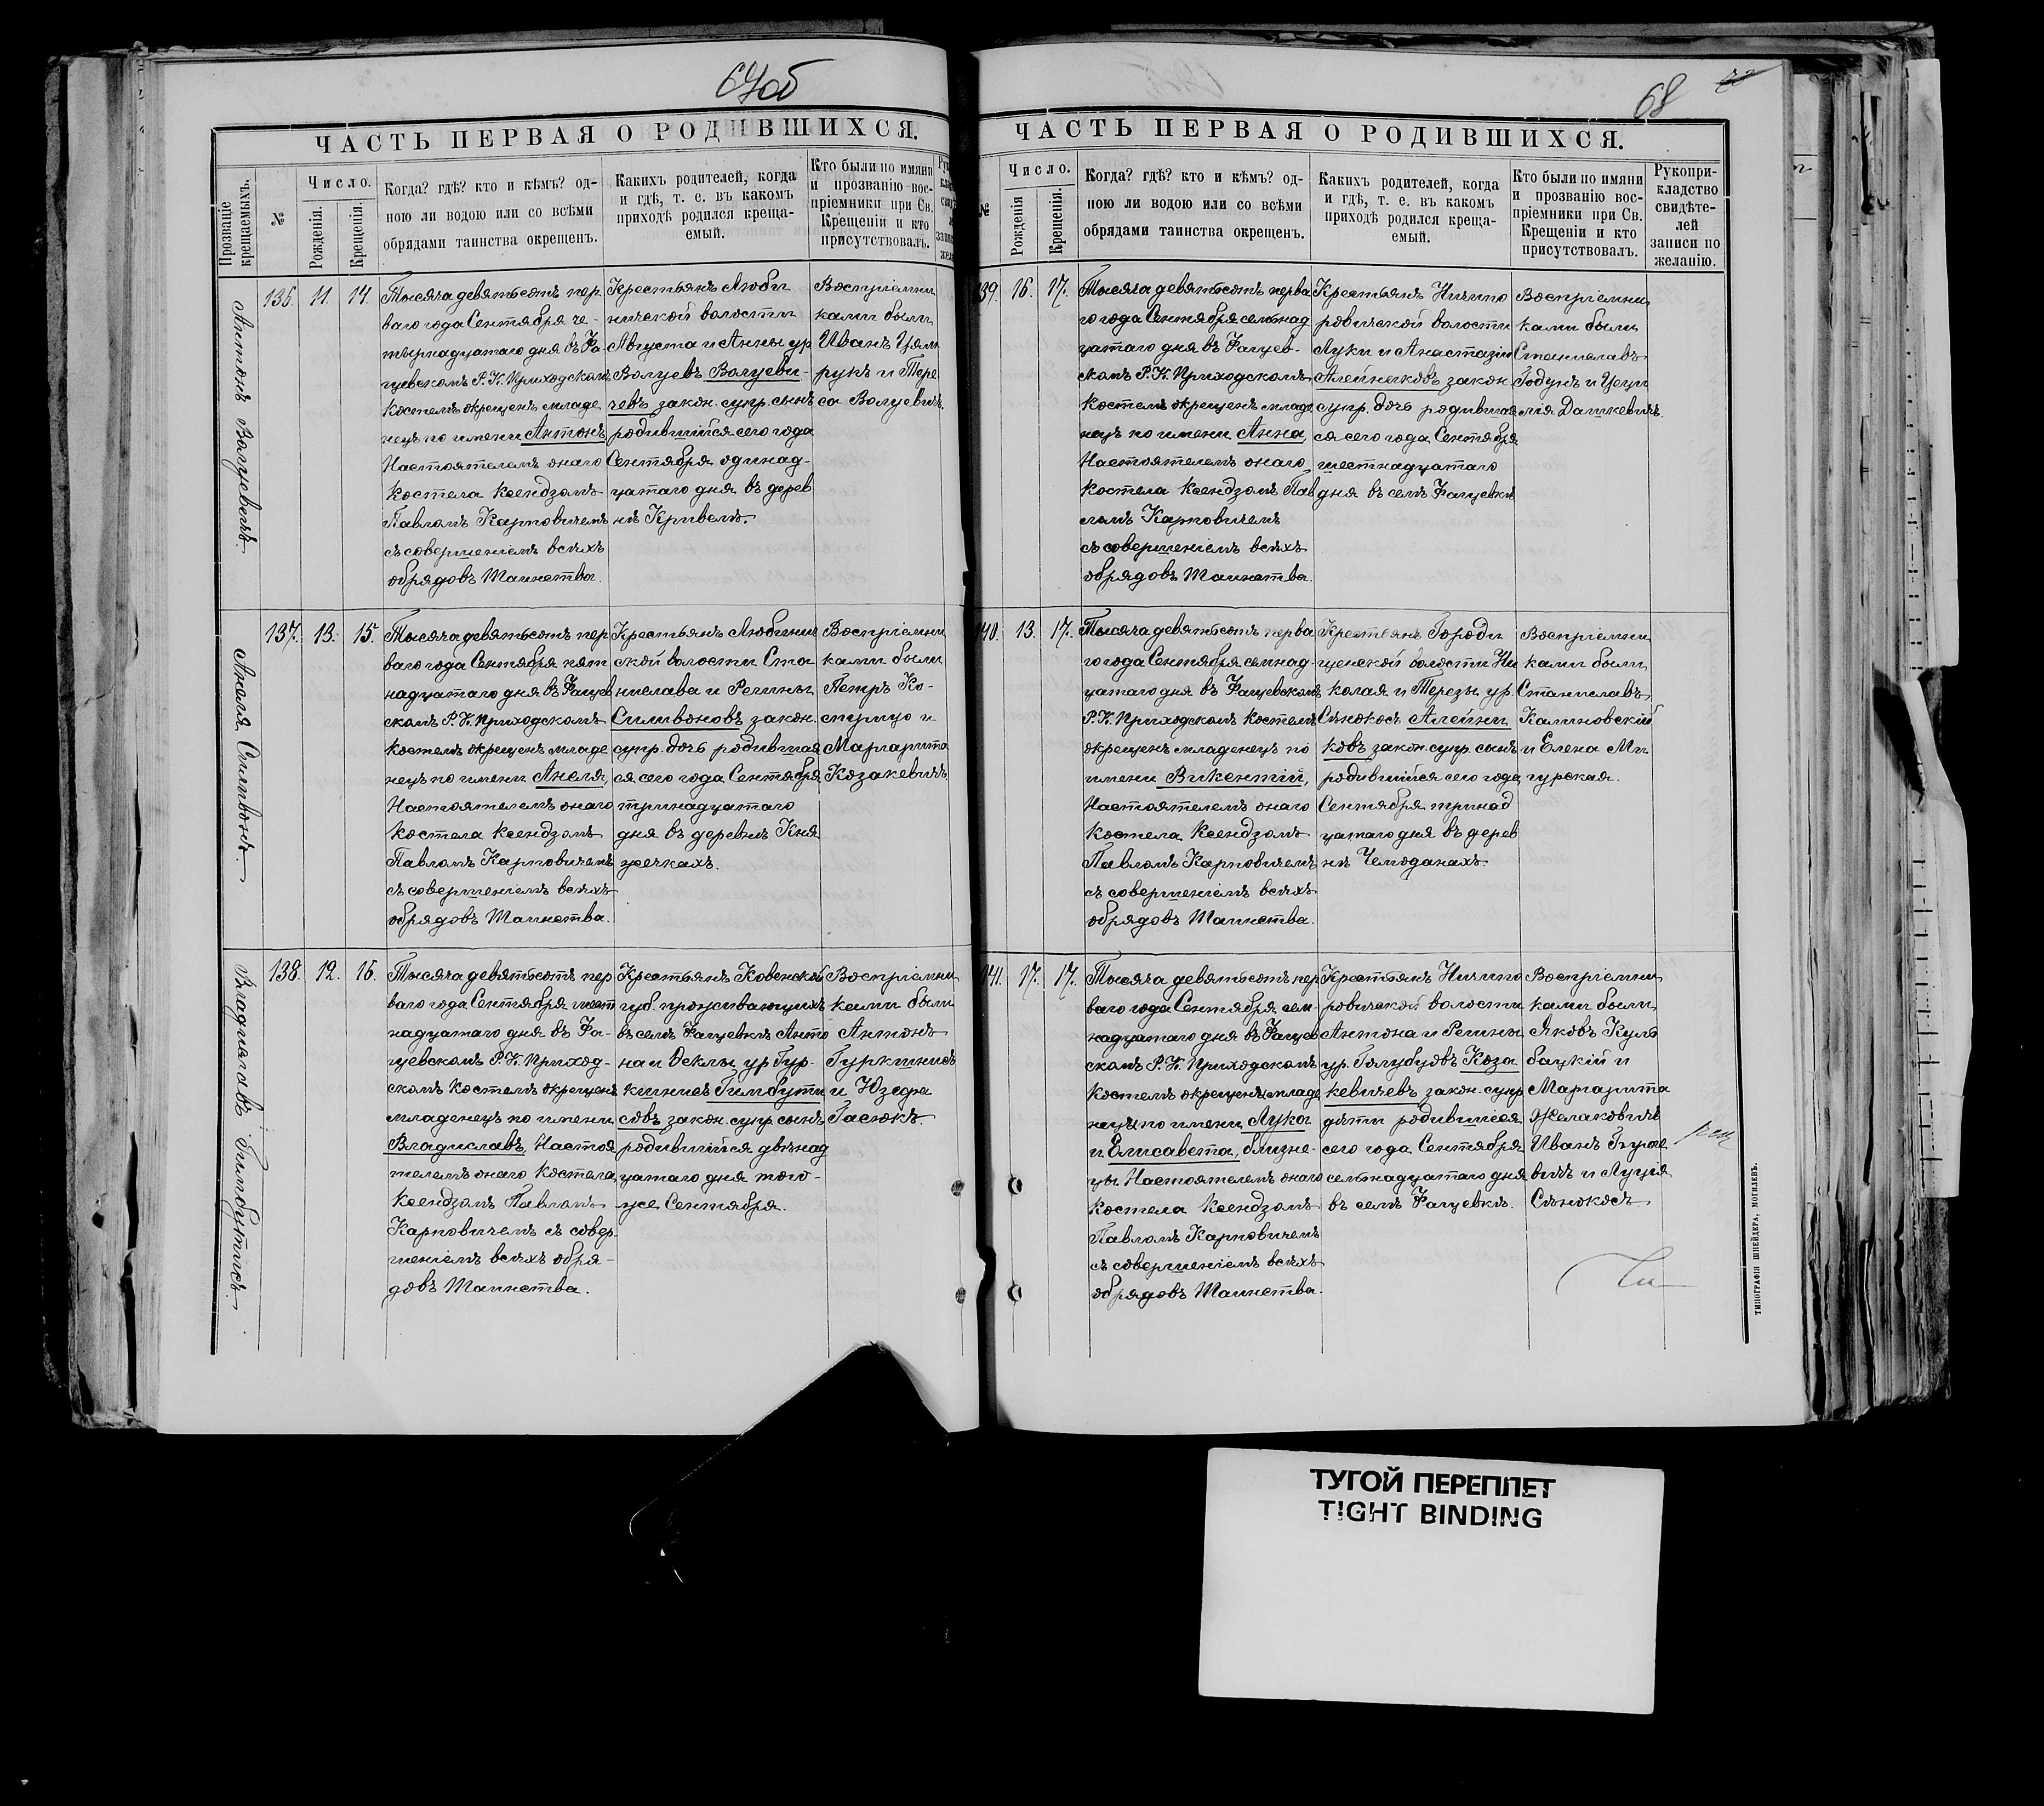 67об
ЧАСТЬ ПЕРВАЯ О РОДИВШИХСЯ.
Прозваніе крещаемыхъ.
№
Число.
Рожденія.
Крещенія.
Когда? гдѣ? кто и кѣмъ? од-
ною ли водою или со всѣми
обрядами таинства окрещенъ.
Какихъ родителей, когда
и гдѣ, т. е. въ какомъ
приходѣ родился креща-
емый.
Кто были по имяни
и прозванію вос-
пріемники при Св.
Крещеніи и кто
присутствовалъ.
Антонъ Валуевичъ.
136. 11. 14.
Тысяча девятьсотъ пер
ваго года Сентября че-
тырнадцатаго дня въ Фа-
щевскомъ Р. К. Приходскомъ
Костелѣ окрещенъ младе
нецъ по имени Антонъ
Настоятелемъ онаго
Костела Ксендзомъ
Павломъ Карповичемъ
съ совершеніемъ всѣхъ
обрядовъ Таинства.
Крестьянъ Люби
нической волости
Августа и Анны ур
Валуевъ Валуеви-
чевъ закон. супр. сынъ
родившійся сего года
Сентября одинад-
цатаго дня въ дерев
нѣ Кривелѣ.
Воспріемни
ками были
Иванъ
рукъ и Тере
са Валуевичъ.
Анеля Силивонъ.
137. 13. 15.
Тысяча девятьсотъ пер
ваго года Сентября пят
надцатаго дня въ Фащев
скомъ Р. К. Приходскомъ
Костелѣ окрещенъ младе
нецъ по имени Анеля,
Настоятелемъ онаго
Костела Ксендзомъ
Павломъ Карповичемъ
съ совершеніемъ всѣхъ
обрядовъ Таинства.
Крестьянъ Любинич
ской волости Ста
нислава и Регины
Силивоновъ закон.
супр. дочь родившая
ся сего года Сентября
тринадцатаго
дня въ деревнѣ Кня
жечкахъ.
Воспріемни
ками были
Петръ Ко-
и
Маргарита
Козакевичъ
Владиславъ Гимбутисъ.
138. 12. 16.
Тысяча девятьсотъ пер
ваго года Сентября шест
надцатаго дня въ Фа-
щевскомъ Р. К. Приход-
скомъ Костелѣ окрещенъ
младенецъ по имени
Владиславъ, Настоя
телемъ онаго Костела
Ксендзомъ Павломъ
Карповичемъ съ совер
шеніемъ всѣхъ обря-
довъ Таинства.
Крестьянъ Ковенской
губ. проживающихъ
въ селѣ Фащевкѣ Анто
на и Ѳеклы ур Гур-
кшнисъ Гимбути
совъ закон. супр. сынъ
родившійся двѣнад
цатаго дня того-
же Сентября.
Воспріемни
ками были
Антонъ
Гуркшнисъ
и Юзефа
Гасюкъ.
68
ЧАСТЬ ПЕРВАЯ О РОДИВШИХСЯ.
№
Число.
Рожденія.
Крещенія.
Когда? гдѣ? кто и кѣмъ? од-
ною ли водою или со всѣми
обрядами таинства окрещенъ.
Какихъ родителей, когда
и гдѣ, т. е. въ какомъ
приходѣ родился креща-
емый.
Кто были по имяни
и прозванію вос-
пріемники при Св.
Крещеніи и кто
присутствовалъ.
Рукопри-
кладство
свидѣте-
лей
записи по
желанію.
139. 16. 17.
Тысяча девятьсотъ перва
го года Сентября семнад
цатаго дня въ Фащев-
скомъ Р. К. Приходскомъ
Костелѣ окрещенъ младе
нецъ по имени Анна,
Настоятелемъ онаго
Костела Ксендзомъ Пав
ломъ Карповичемъ
съ совершеніемъ всѣхъ
обрядовъ Таинства.
Крестьянъ Ничипо
ровичской волости
Луки и Анастазіи
Алейниковъ закон.
супр. дочь родившая
ся сего года Сентября
шестнадцатаго
дня въ селѣ Фащевкѣ
Воспріемни
ками были
Станиславъ
Годунъ и Цеци
лія Дашкевичъ.
140. 13. 17.
Тысяча девятьсотъ перва
го года Сентября семнад-
цатаго дня въ Фащевскомъ
Р. К. Приходскомъ Костелѣ
окрещенъ младенецъ по
имени Викентій,
Настоятелемъ онаго
Костела Ксендзомъ
Павломъ Карповичемъ
съ совершеніемъ всѣхъ
обрядовъ Таинства.
Крестьянъ Городи
щенской волости Ни
колая и Терезы ур.
Сѣнокосъ Алейни
ковъ закон. супр. сынъ
родившійся сего года
Сентября тринад
цатаго дня въ дерев
нѣ Чемоданахъ.
Воспріемни
ками были
Станиславъ
Калиновскій
и Елена Ми
гурская.
141. 17. 17.
Тысяча девятьсотъ пер
ваго года Сентября сем-
надцатаго дня въ Фащев
скомъ Р. К. Приходскомъ
Костелѣ окрещены младе
нецы по имени Лука
и Елисавета, близне-
цы Настоятелемъ онаго
Костела Ксендзомъ
Павломъ Карповичемъ
съ совершеніемъ всѣхъ
обрядовъ Таинства.
Крестьянъ Ничипо
ровичской волости
Антона и Регины
ур. Голубцовъ Коза
кевичевъ закон. супр
дѣти родившіеся
сего года Сентября
семнадцатаго дня
въ селѣ Фащевкѣ.
Воспріемни
ками были
Яковъ Куль
бацкій и
Маргарита
Желаковичъ
Иванъ
вичъ и Луція
Сѣнокосъ
ТИПОГРАФІЯ ШНЕЙДЕРА, МОГИЛЕВЪ.
ТУГОЙ ПЕРЕПЛЕТ
TIGHT BINDING